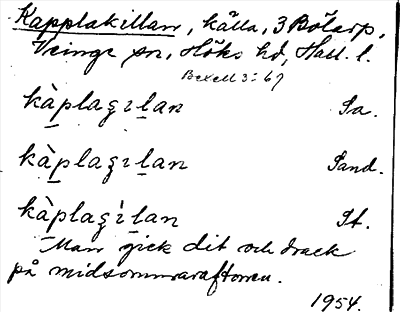 Kapplakillan, källa, 3 Bölarp,
Veinge sn, Höks hd, Hall. l.
Bexell 3:67
kàplagılan Sa.
kàplagılan Sand.
kàplagìlan St.
Man gick dit och drack
på midsommaraftonen.
1954.